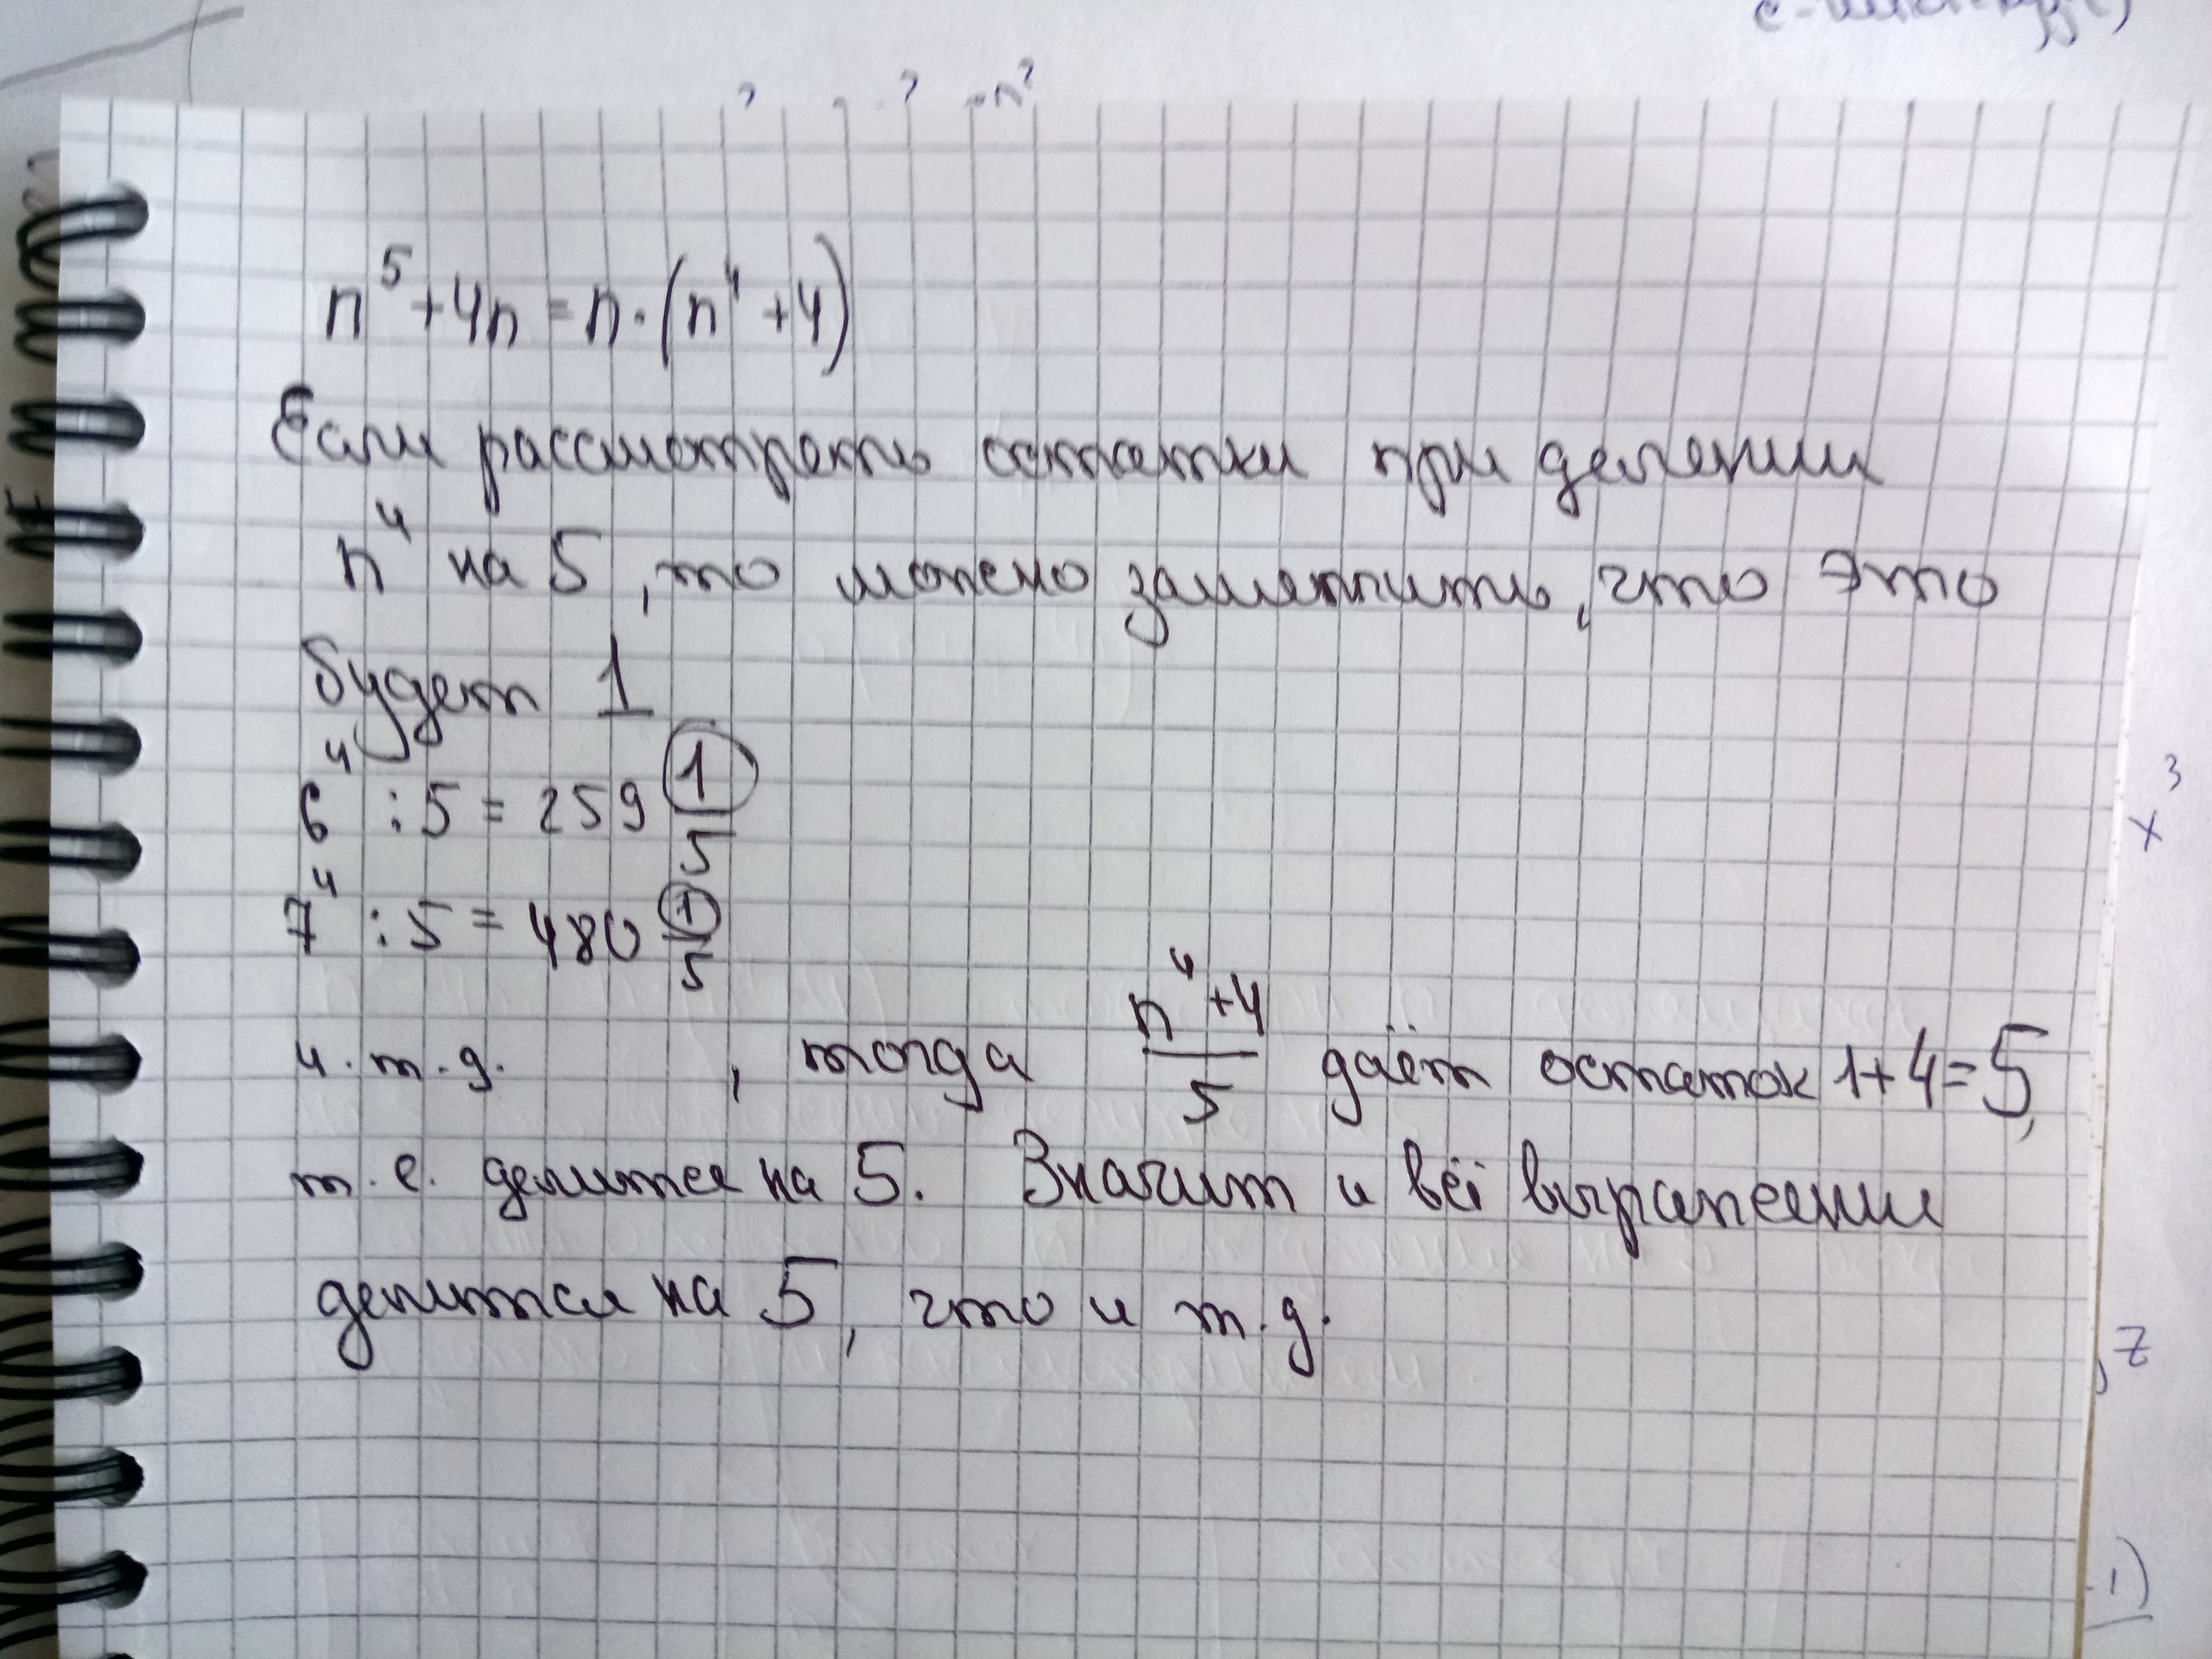 n⁵+4n = n·(n⁴+4)
Если рассмотреть остатки при делении
n⁴ на 5, то можно заметить, что это
будет 1
6⁴ : 5 = 259 1/5
7⁴ : 5 = 480 1/5
и.т.д. , тогда (n⁴+4)/5 даёт остаток 1+4=5,
т.е. делится на 5. Значит и всё выражении
делится на 5, что и т.д.
x³
, z
-1)